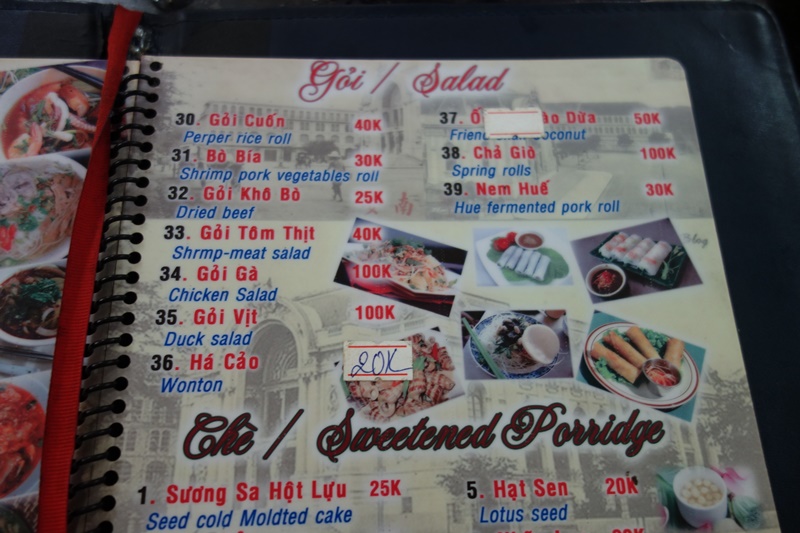 Gỏi / Salad
30. Gỏi Cuốn 40K
Perper rice roll
31. Bò Bía 30K
Shrimp pork vegetables roll
32. Gỏi Khô Bò 25K
Dried beef
33. Gỏi Tôm Thịt 40K
Shrmp-meat salad
34. Gỏi Gà 100K
Chicken Salad
35. Gỏi Vịt 100K
Duck salad
36. Há Cảo 20K
Wonton
37. Dừa 50K
38. Chả Giò 100K
Spring rolls
39. Nem Huế 30K
Hue fermented pork roll
Chè / Sweetened Porridge
1. Sương Sa Hột Lựu 25K
Seed cold Moldted cake
5. Hạt Sen 20K
Lotus seed